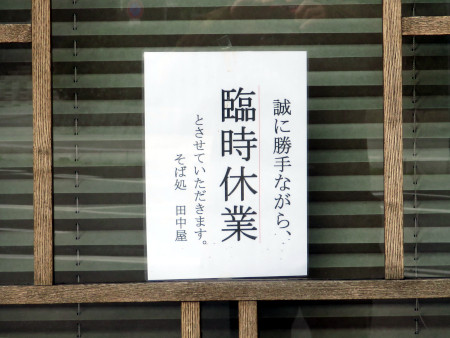 誠に勝手ながら、
臨時休業
とさせていただきます。
そば処　田中屋